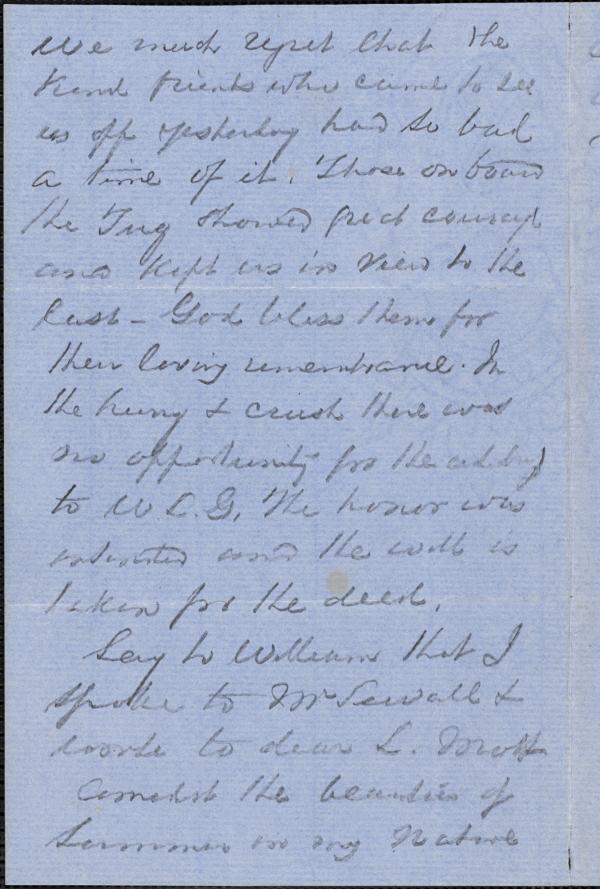 We much regret that the
kind friends who came to see
us off yesterday had so bad
a time of it. Those on board
the Tug showed great courage
and kept us in view to the
last - God bless them for
their loving remembrance. In
the hurry & crush there was
no opportunity for the
to W L. G. The honor was
and the will is
taken for the deed.
Say to William that I
spoke to Mr Sewall &
wrote to dear L. Mott
Amidst the beauties of
Summer in my Native